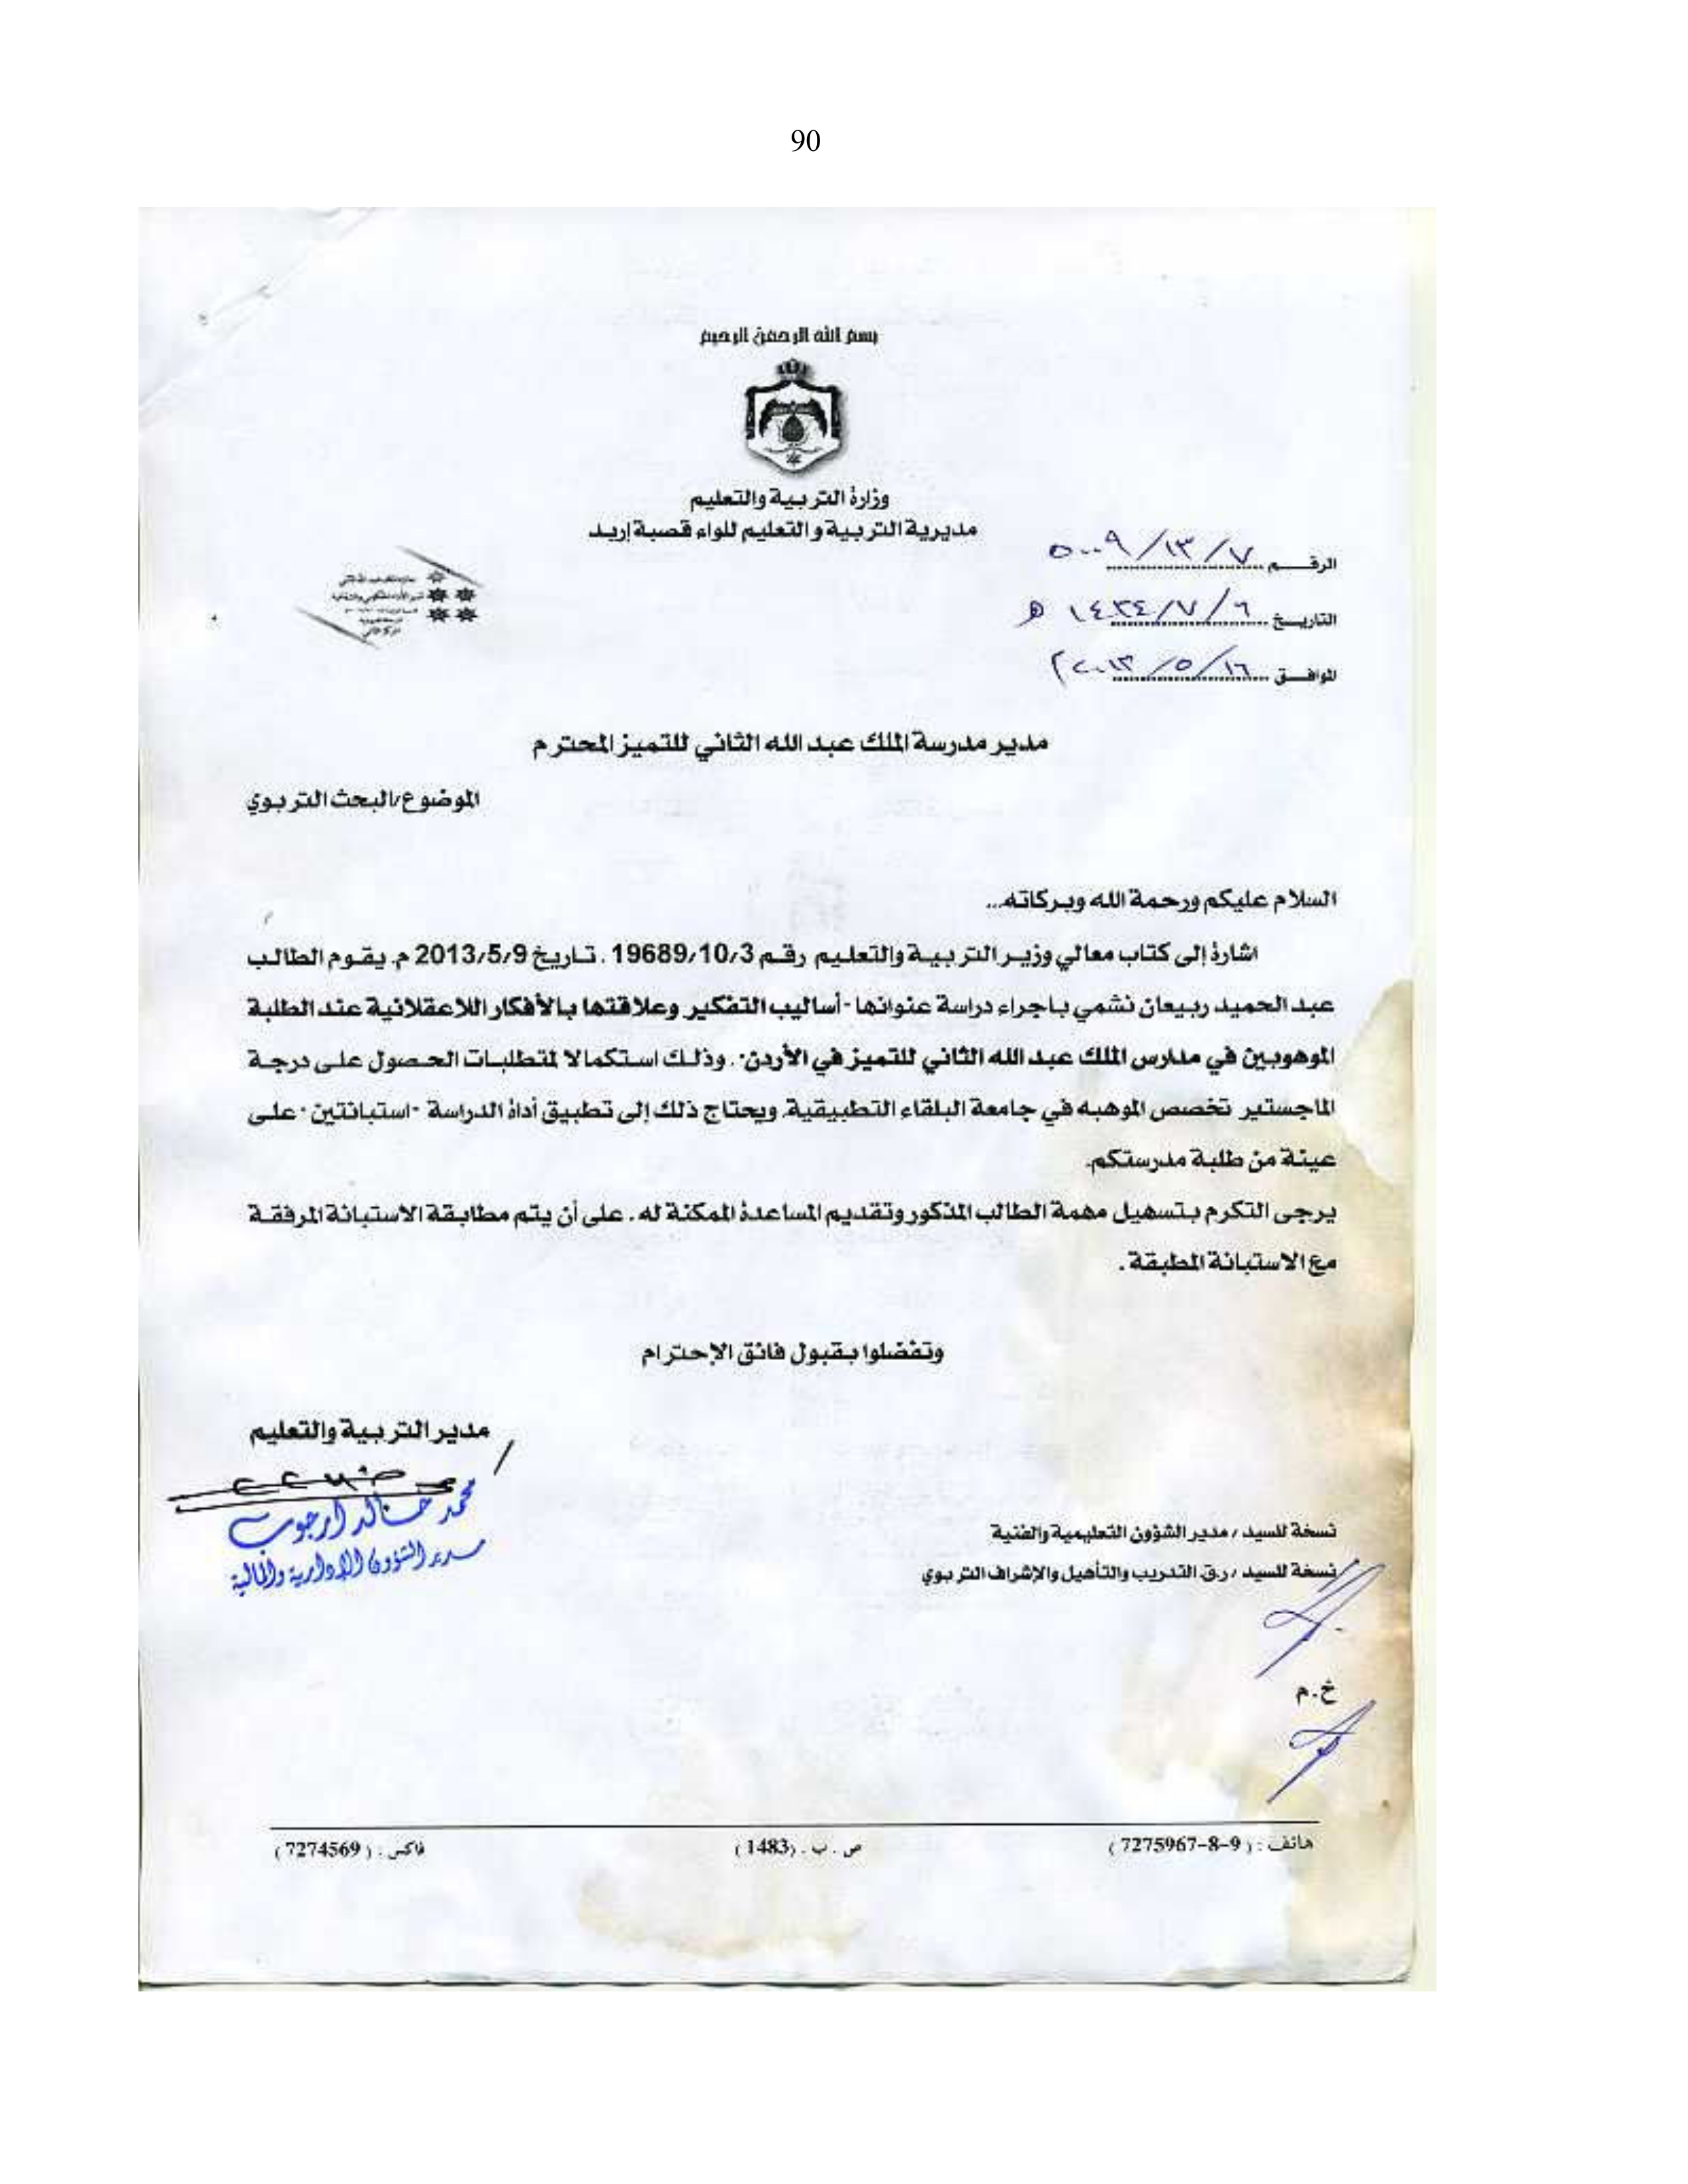 90
بسم الله الرحمن الرحيم
وزارة التربية والتعليم
مديرية التربية والتعليم للواء قصبة إربد
الرقم ٧/١٣/٥٠٠٩
التاريخ ٦/٧/١٤٣٤ هـ
الموافق ١٦/٥/٢٠١٣ م
مدير مدرسة الملك عبد الله الثاني للتميز المحترم
الموضوع/البحث التربوي
السلام عليكم ورحمة الله وبركاته...
اشارة إلى كتاب معالي وزير التربية والتعليم رقم 19689/10/3 . تاريخ 2013/5/9 م. يقوم الطالب
عبد الحميد ربيعان نشمي باجراء دراسة عنوانها "أساليب التفكير وعلاقتها بالأفكار اللاعقلانية عند الطلبة
الموهوبين في مدارس الملك عبد الله الثاني للتميز في الأردن" . وذلك استكمالا لمتطلبات الحصول على درجة
الماجستير تخصص الموهبه في جامعة البلقاء التطبيقية. ويحتاج ذلك إلى تطبيق أداة الدراسة "استبانتين" على
عينة من طلبة مدرستكم.
يرجى التكرم بتسهيل مهمة الطالب المذكور وتقديم المساعدة الممكنة له . على أن يتم مطابقة الاستبانة المرفقة
مع الاستبانة المطبقة .
وتفضلوا بقبول فائق الإحترام
مدير التربية والتعليم
محمد خالد ارجوب
مدير الشؤون الإدارية والمالية
نسخة للسيد / مدير الشؤون التعليمية والفنية
نسخة للسيد / ر.ق. التدريب والتأهيل والإشراف التربوي
خ.م
هاتف : ( 7275967-8-9 )
ص . ب . (1483 )
فاكس : ( 7274569 )